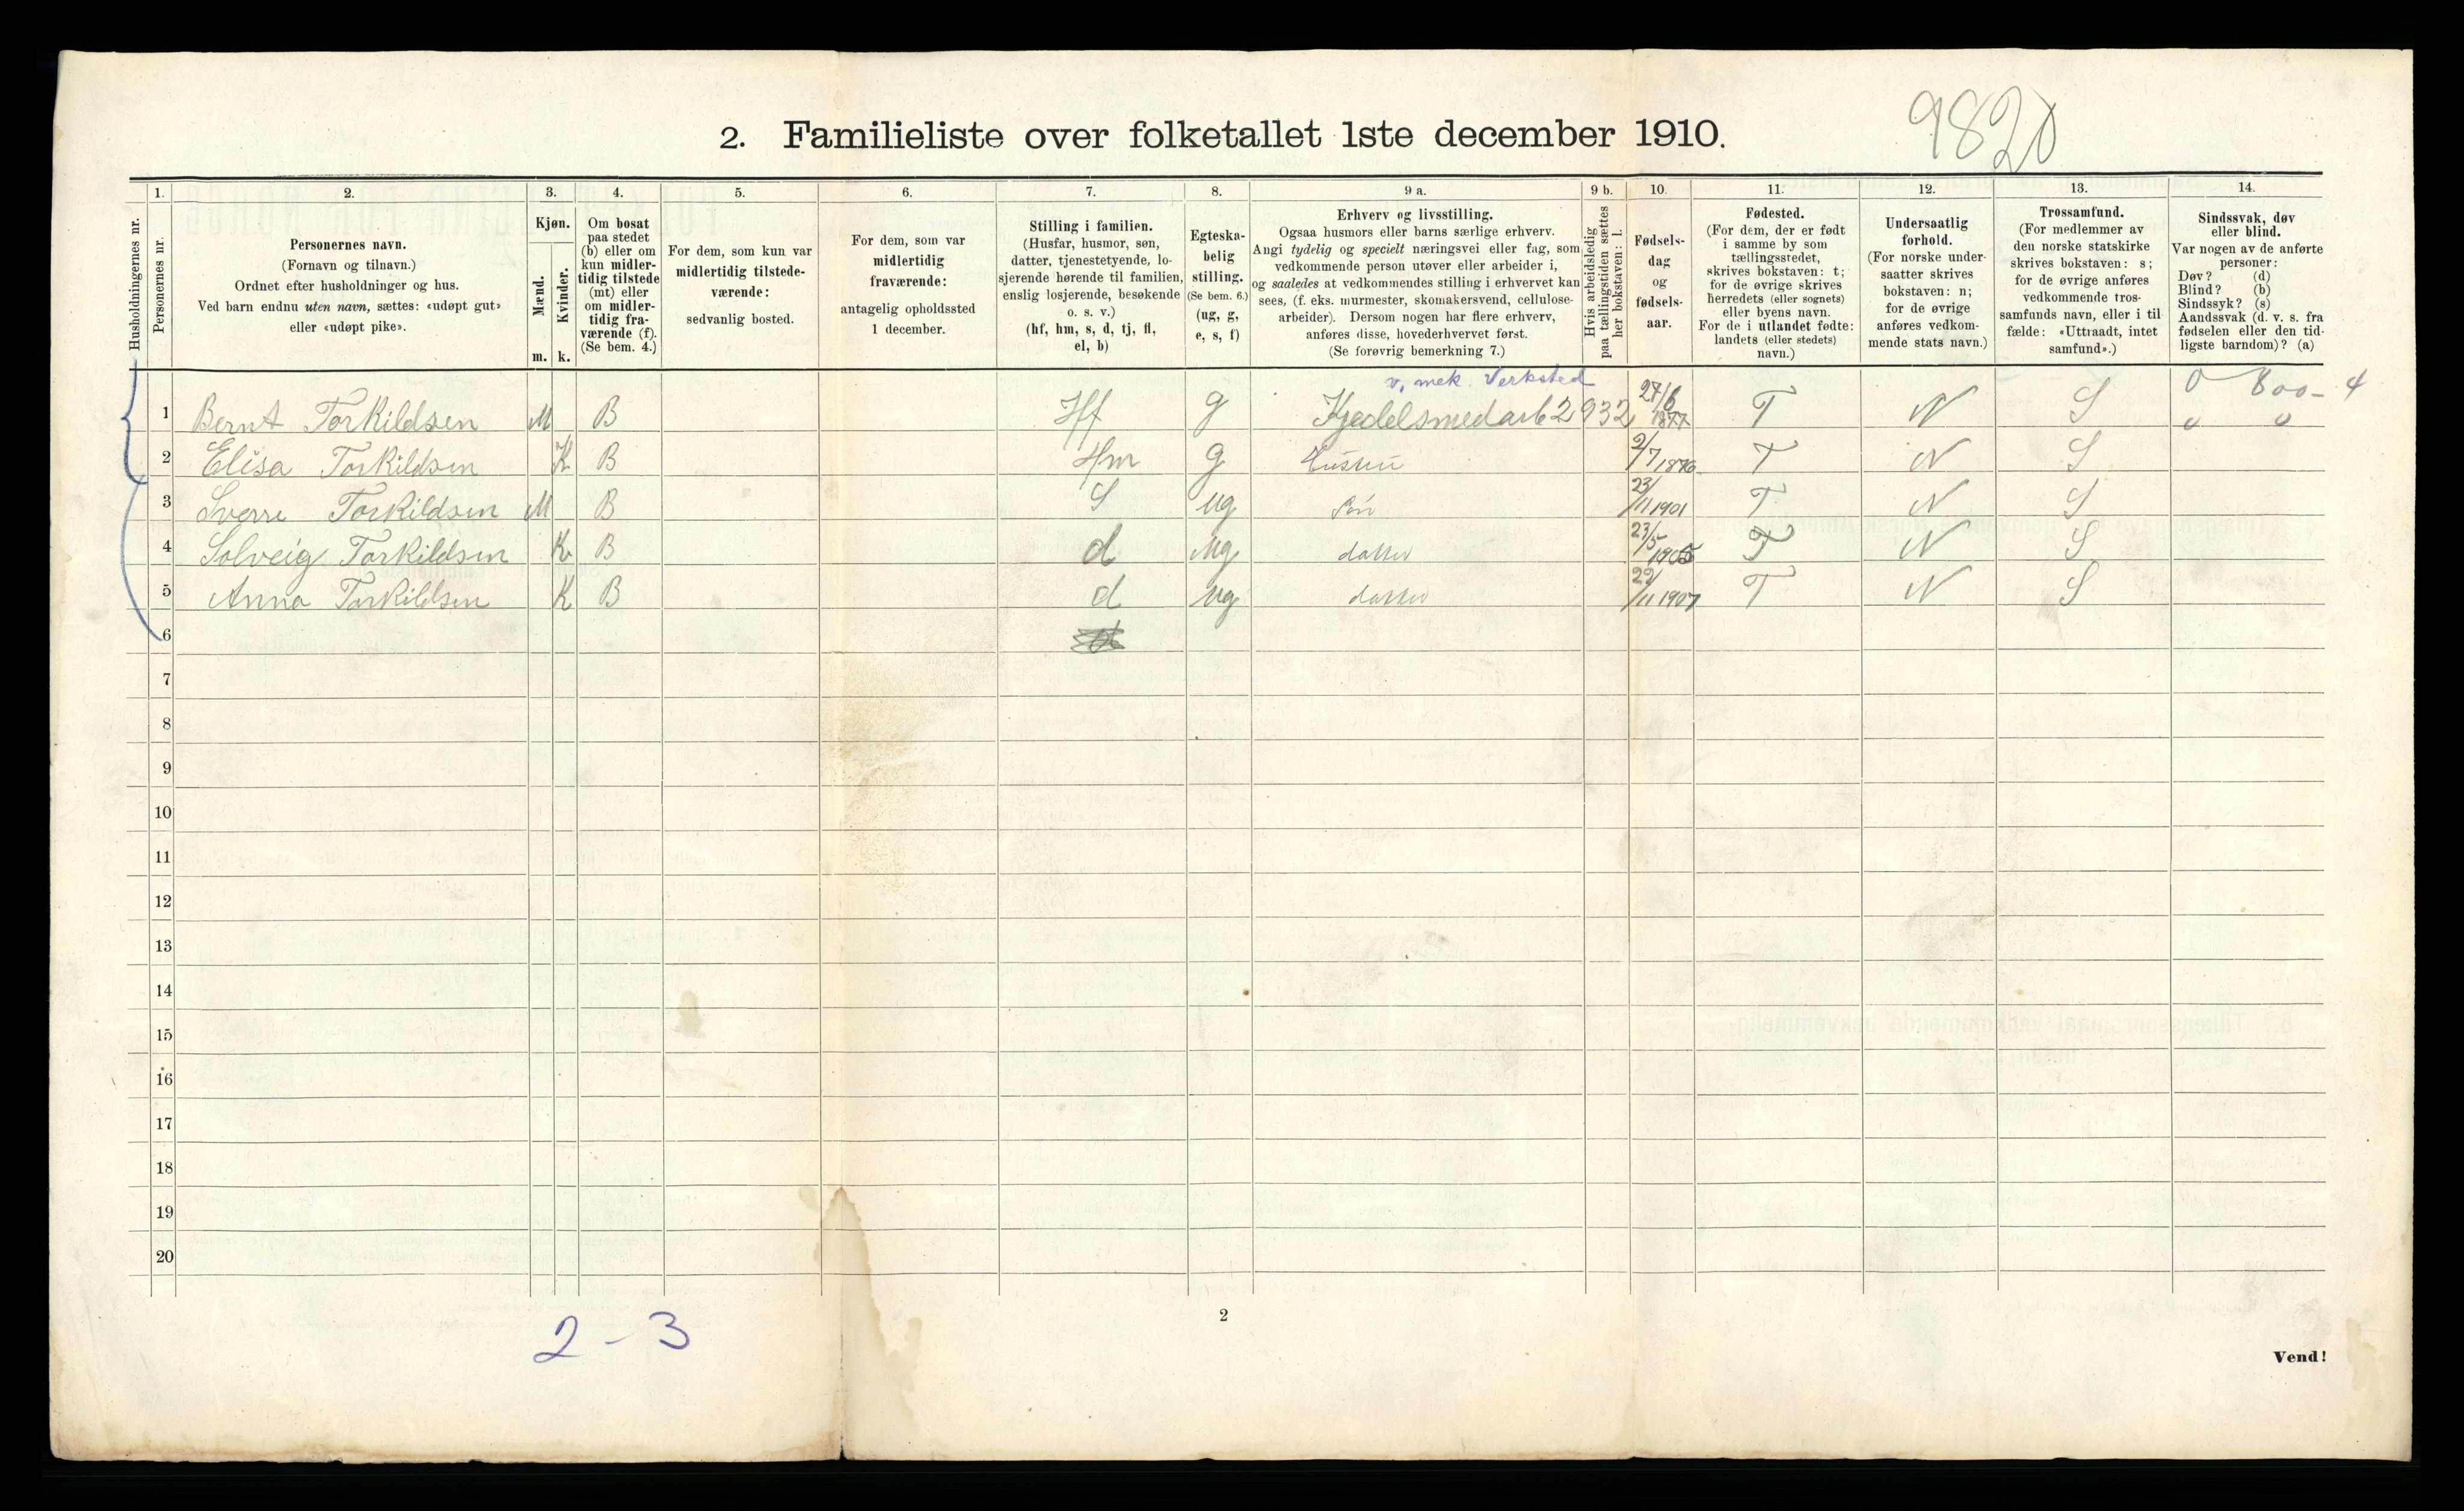 9820
2. Familieliste over folketallet 1ste december 1910.
1. 2. 3. 4. 5. 6. 7. 8. 9 a. 9 b. 10. 11. 12. 13. 14.
Husholdningernes nr.
Personernes nr.
Personernes navn.
(Fornavn og tilnavn.)
Ordnet efter husholdninger og hus.
Ved barn endnu uten navn, sættes: «udøpt gut»
eller «udøpt pike».
Kjøn.
Mænd.
Kvinder.
m. k.
Om bosat
paa stedet
(b) eller om
kun midler-
tidig tilstede
(mt) eller
om midler-
tidig fra-
værende (f).
(Se bem. 4.)
For dem, som kun var
midlertidig tilstede-
værende:
sedvanlig bosted.
For dem, som var
midlertidig
fraværende:
antagelig opholdssted
1 december.
Stilling i familien.
(Husfar, husmor, søn,
datter, tjenestetyende, lo-
sjerende hørende til familien,
enslig losjerende, besøkende
o. s. v.)
(hf, hm, s, d, tj, fl,
el, b)
Egteska-
belig
stilling.
(Se bem. 6.)
(ug, g,
e, s, f)
Erhverv og livsstilling.
Ogsaa husmors eller barns særlige erhverv.
Angi tydelig og specielt næringsvei eller fag, som
vedkommende person utøver eller arbeider i,
og saaledes at vedkommendes stilling i erhvervet kan
sees, (f. eks. murmester, skomakersvend, cellulose-
arbeider). Dersom nogen har flere erhverv,
anføres disse, hovederhvervet først.
(Se forøvrig bemerkning 7.)
Hvis arbeidsledig
paa tællingstiden sættes
her bokstaven: l.
Fødsels-
dag
og
fødsels-
aar.
Fødested.
(For dem, der er født
i samme by som
tællingsstedet,
skrives bokstaven: t;
for de øvrige skrives
herredets (eller sognets)
eller byens navn.
For de i utlandet fødte:
landets (eller stedets)
navn.)
Undersaatlig
forhold.
(For norske under-
saatter skrives
bokstaven: n;
for de øvrige
anføres vedkom-
mende stats navn.)
Trossamfund.
(For medlemmer av
den norske statskirke
skrives bokstaven: s;
for de øvrige anføres
vedkommende tros-
samfunds navn, eller i til-
fælde: «Uttraadt, intet
samfund».)
Sindssvak, døv
eller blind.
Var nogen av de anførte
personer:
Døv? (d)
Blind? (b)
Sindssyk? (s)
Aandssvak (d. v. s. fra
fødselen eller den tid-
ligste barndom)? (a)
v. mek. Verksted
1 Bernt Torkildsen M B Hf g Kjedelsmedarb 2932 27/6 1877 T N S 0 800- 4
0 0
2 Elisa Torkildsen K B Hm g Hustru 2/7 1876 T N S
3 Sverre Torkildsen M B S ug Søn 23/11 1901 T N S
4 Solveig Torkildsen K B d ug datter 23/5 1905 T N S
5 Anna Torkildsen K B d ug datter 22/11 1907 T N S
6
7
8
9
10
11
12
13
14
15
16
17
18
19
20
2
2 - 3
Vend!